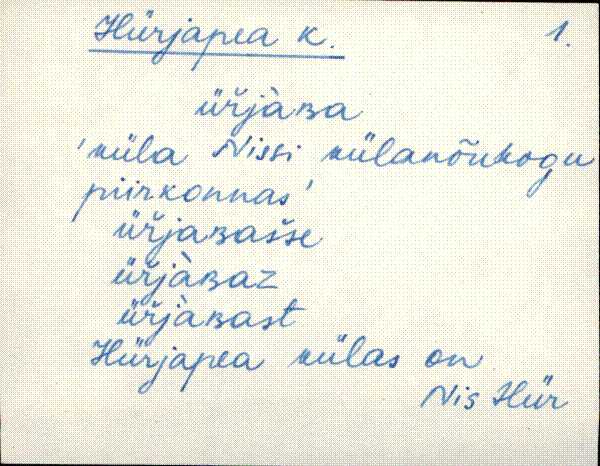 Hürjapea k. 1.
üřjàʙa
'küla Nissi külanõukogu
piirkonnas'
üřjaʙašse
üřjàʙaz
üřjàʙast
Hürjapea külas on
Nis Hür